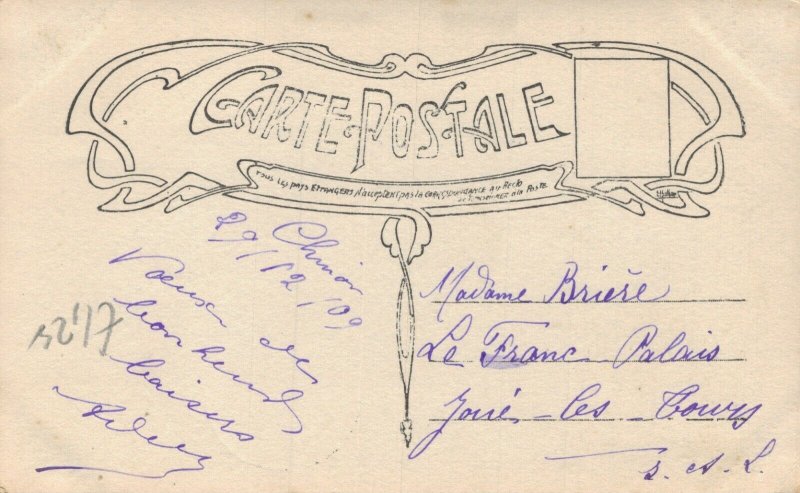 CARTE POSTALE
TOUS LES PAYS ETRANGERS N'ACCEPTENT PAS LA CORRESPONDANCE AU RECTO
A LA POSTE
Chinon
29/12/09
Voeux de
bonheur
baisers
Madame Brière
Le Franc Palais
Joué-les-Tours
I. et L.